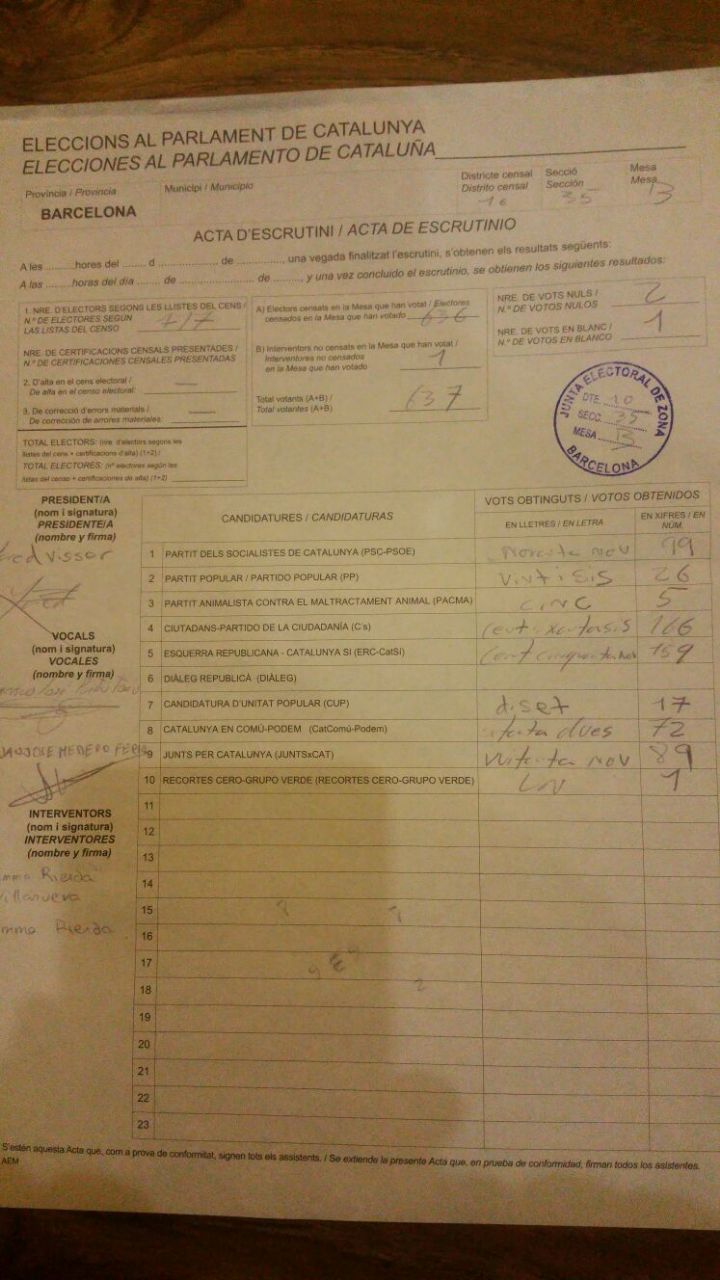 ELECCIONS AL PARLAMENT DE CATALUNYA
ELECCIONES AL PARLAMENTO DE CATALUÑA
Província / Provincia
BARCELONA
Municipi / Municipio
Districte censal
Distrito censal
10
Secció
Sección
35
Mesa
Mesa
B
ACTA D'ESCRUTINI / ACTA DE ESCRUTINIO
A les ......... hores del ....... d ............... de ..............., una vegada finalitzat l'escrutini, s'obtenen els resultats següents:
A las ....... horas del día ....... de ............... de ..........., y una vez concluido el escrutinio, se obtienen los siguientes resultados:
1. NRE. D'ELECTORS SEGONS LES LLISTES DEL CENS /
N.º DE ELECTORES SEGÚN
LAS LISTAS DEL CENSO
717
NRE. DE CERTIFICACIONS CENSALS PRESENTADES /
N.º DE CERTIFICACIONES CENSALES PRESENTADAS
2. D'alta en el cens electoral /
De alta en el censo electoral:
3. De correcció d'errors materials /
De corrección de errores materiales:
TOTAL ELECTORS: (nre. d'electors segons les
llistes del cens + certificacions d'alta) (1+2) /
TOTAL ELECTORES: (nº electores según las
listas del censo + certificaciones de alta) (1+2)
A) Electors censats en la Mesa que han votat / Electores
censados en la Mesa que han votado
636
B) Interventors no censats en la Mesa que han votat /
Interventores no censados
en la Mesa que han votado
1
Total votants (A+B) /
Total votantes (A+B)
637
NRE. DE VOTS NULS /
N.º DE VOTOS NULOS
2
NRE. DE VOTS EN BLANC /
N.º DE VOTOS EN BLANCO
1
JUNTA ELECTORAL DE ZONA
DTE. 10
SECC. 35
MESA B
BARCELONA
PRESIDENT/A
(nom i signatura)
PRESIDENTE/A
(nombre y firma)
VOCALS
(nom i signatura)
VOCALES
(nombre y firma)
JOSE MEDERO
INTERVENTORS
(nom i signatura)
INTERVENTORES
(nombre y firma)
Rierda
Villanueva
Rierda
CANDIDATURES / CANDIDATURAS
VOTS OBTINGUTS / VOTOS OBTENIDOS
EN LLETRES / EN LETRA
EN XIFRES / EN
NÚM.
1 PARTIT DELS SOCIALISTES DE CATALUNYA (PSC-PSOE) noranta nou 99
2 PARTIT POPULAR / PARTIDO POPULAR (PP) vint i sis 26
3 PARTIT ANIMALISTA CONTRA EL MALTRACTAMENT ANIMAL (PACMA) cinc 5
4 CIUTADANS-PARTIDO DE LA CIUDADANÍA (C's) cent xantasis 166
5 ESQUERRA REPUBLICANA - CATALUNYA SÍ (ERC-CatSí) cent cinquanta nou 159
6 DIÀLEG REPUBLICÀ (DIÀLEG)
7 CANDIDATURA D'UNITAT POPULAR (CUP) diset 17
8 CATALUNYA EN COMÚ-PODEM (CatComú-Podem) dues 72
9 JUNTS PER CATALUNYA (JUNTSxCAT) vuitanta nou 89
10 RECORTES CERO-GRUPO VERDE (RECORTES CERO-GRUPO VERDE) un 1
11
12
13
14
15
16
17
18
19
20
21
22
23
S'estén aquesta Acta que, com a prova de conformitat, signen tots els assistents. / Se extiende la presente Acta que, en prueba de conformidad, firman todos los asistentes.
AEM